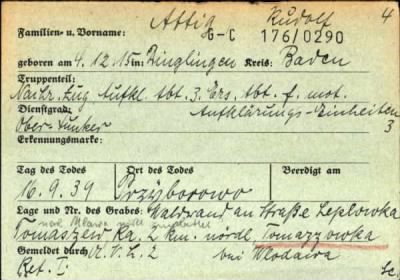 Attig Rudolf 4
Familien- u. Vorname: G-C 176/0290
geboren am 4.12.15 in: Dinglingen Kreis: Baden
Truppenteil:
Nachr. Zug Aufkl. Abt. 3. Ers. Abt. f. mot.
Dienstgrad: Aufklärungs-Einheiten
Ober-Funker 3
Erkennungsmarke:
Tag des Todes Ort des Todes Beerdigt am
16.9.39 Przyborowo
Lage und Nr. des Grabes: Waldrand an Straße Leplowka
Tomaszewka, 2 km. nördl. Tomazzowka
Gemeldet durch: A.V.L.2 bei Wlodawa
Ref. I.